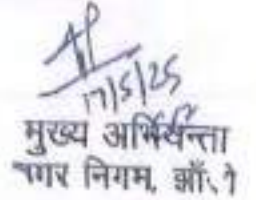 17/5/25
मुख्य अभियन्ता
नगर निगम,